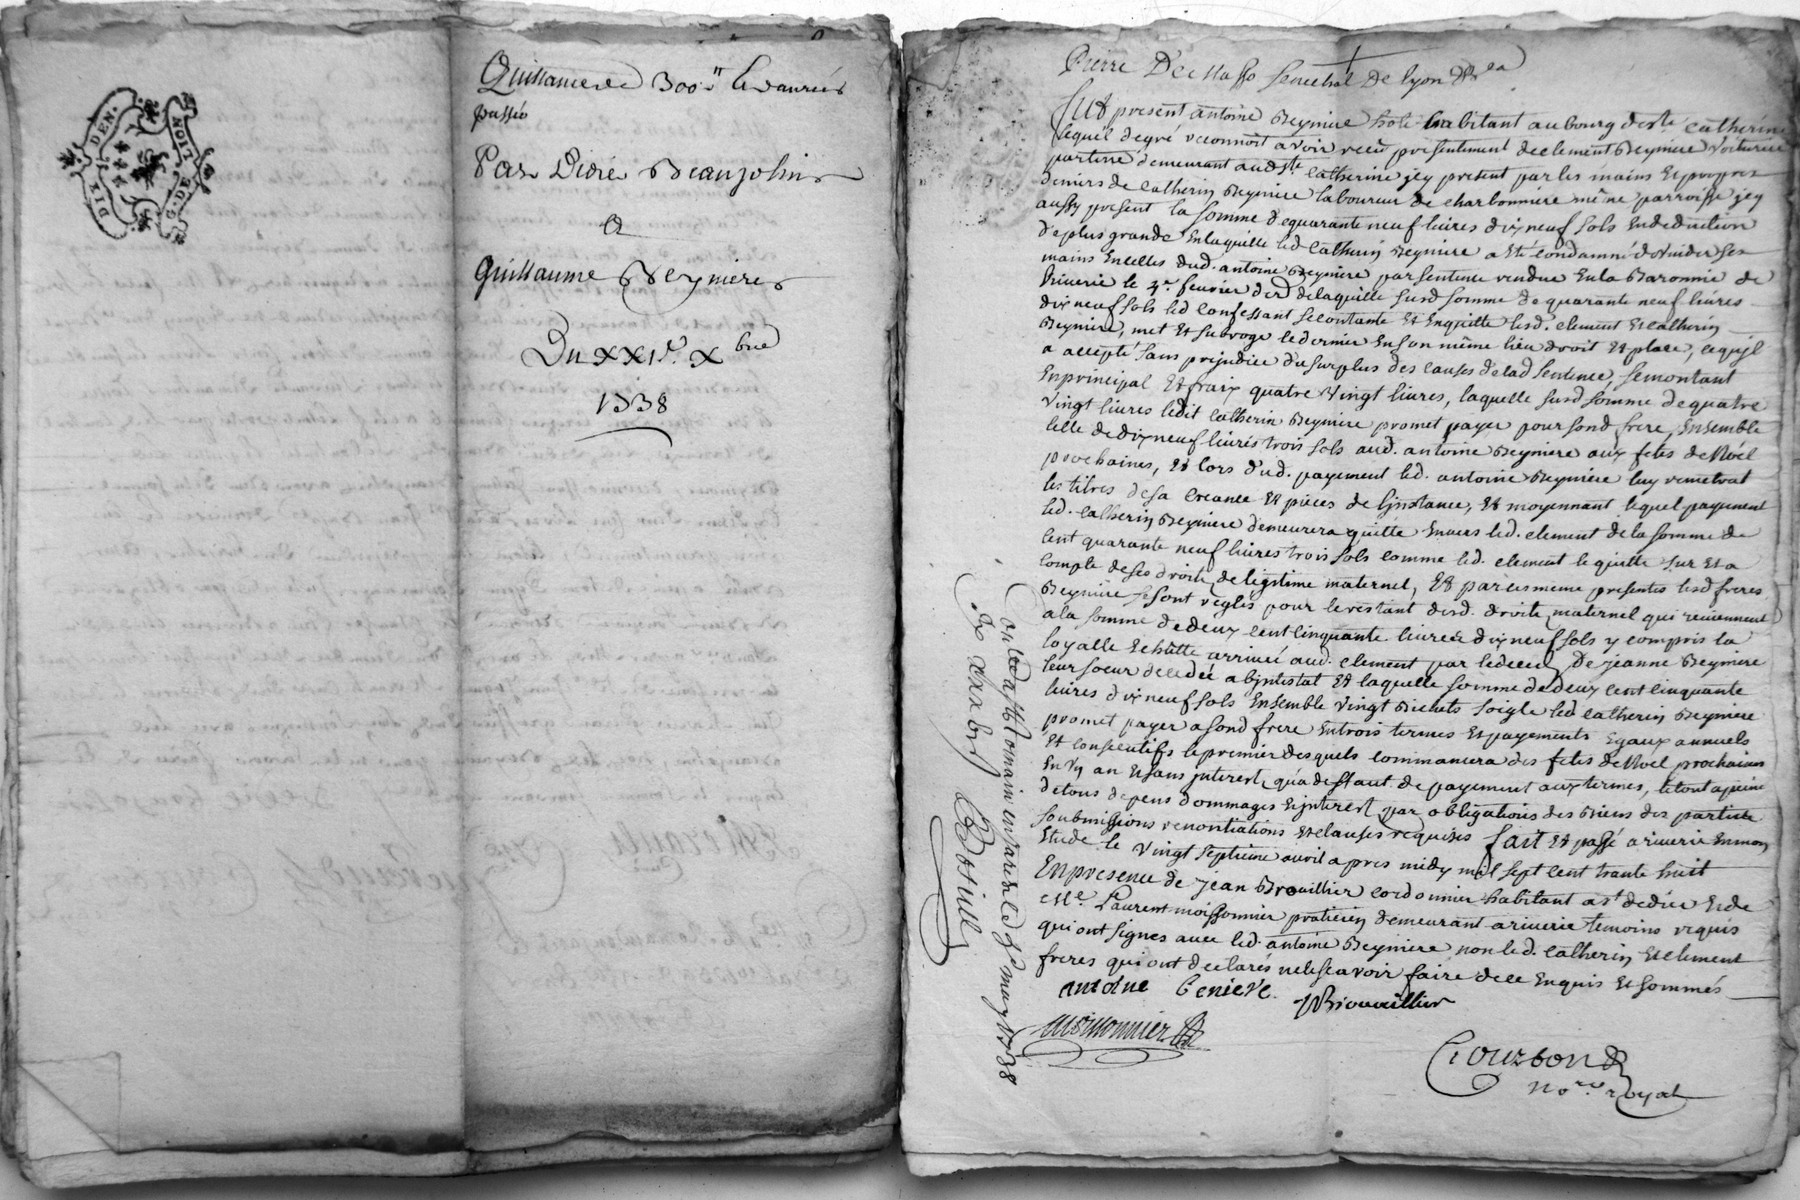 DIX DEN.
G. DE LION
Quittance de 300ll
passée
Par Didie Beaujolin
a
Guillaume Reyniere
Du XXIe. Xbre
1738
Pierre De Masso senechal De lyon
fut present antoine Beyniere hote habitant au bourg de ste. catherine
lequel de gré reconnoit avoir reçeu presentement de clement Beyniere voiturier
par terre demeurant aud ste catherine jcy present par les mains et propres
deniers de catherin Beyniere laboureur de charbonniere même parroisse jcy
aussy present la somme de quarante neuf livres dix neuf sols en deduction
de plus grande en laquelle led catherin Beyniere a eté condamné de vuider ses
mains en celles dud. antoine Beyniere par sentence rendue en la Baronnie de
Riverie le 4e. fevrier der de laquelle susd somme de quarante neuf livres
dix neuf sols led confessant se contante et en quitte lesd. clement et catherin
Beyniere, met et subroge le dernier en son même lieu droit et place, ce qu'jl
a accepté sans prejudice du surplus des causes de lad sentence, se montant
en principal et fraix quatre vingt livres, laquelle susd somme de quatre
vingt livres ledit catherin Beyniere promet payer pour sond frere, ensemble
celle de dix neuf livres trois sols aud. antoine Beyniere aux fetes de Noél
prochaines, et lors dud. payement led. antoine Beyniere luy remetrat
les titres de sa creance et pieces de l'jnstance, et moyennant lequel payement
led. catherin Beyniere demeurera quitte envers led. clement de la somme de
cent quarante neuf livres trois sols comme led. clement le quitte sur et a
compte de ses droits de legitime maternel, et par ces meme presentes lesd freres
Beyniere se sont reglés pour le restant desd. droits maternel qui reviennent
a la somme de deux cent cinquante livres dix neuf sols y compris la
loyalle echutte arrivée aud. clement par le deces de jeanne Beyniere
leur soeur decedée abjntestat et laquelle somme de deux cent cinquante
livres dix neuf sols ensemble vingt bichets soigle led catherin Beyniere
promet payer a sond frere en trois termes et payements egaux annuels
et consecutifs le premier desquels commancera des fetes de Noel prochaines
en un an et sans jnterest qu'a deffaut de payement aux termes, le tout a peine
de tous depens dommages et jnterest par obligations des biens des parties
soubmissions renontiations et clauses requises fait et passé a riverie en mon
etude le vingt septieme avril apres midy mil sept cent trante huit
en presence de jean Brouillier cordonnier habitant a st didier et de
Me. Laurent moissonnier praticien demeurant a riverie temoins requis
qui ont signes avec led. antoine Beyniere, non led. catherin et clement
freres qui ont declarés ne le scavoir faire de ce enquis et sommés
antoine beniere. JBrouillier
moissonnier
Crouzbon
Nore. royal
may 1738